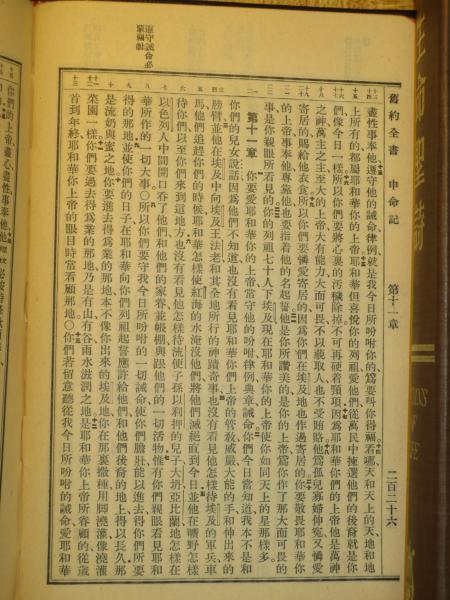 舊約全書 申命記 第十一章 二百二十六
盡性事奉他遵守他的誡命律例就是我今日所吩咐你的爲要叫你得福看哪天和天上的天地和地
上所有的都屬耶和華你的上帝耶和華但喜悅你的列祖愛他們從萬民中揀選他們的後裔就是你
們像今日一樣所以你們要將心裏的汚穢除掉不可再硬着頸項因爲耶和華你們的上帝他是萬神
之神萬主之主至大的上帝大有能力大而可畏不以貌取人也不受賄賂他爲孤兒寡婦伸寃又憐愛
寄居的賜給他衣食所以你們要憐愛寄居的因爲你們在埃及地也作過寄居的你要敬畏耶和華你
的上帝事奉他專靠他也要指着他的名起誓他是你所讚美的是你的上帝爲你作了那大而可畏的
事是你親眼所看見的你的列祖七十人下埃及現在耶和華你的上帝使你如同天上的星那樣多
第十一章 你要愛耶和華你的上帝常守他的吩咐律例典章誡命你們今日當知道我本不是和
你們的兒女說話因爲他們不知道也沒有看見耶和華你們上帝的管敎威嚴大能的手和伸出來的
膀臂並他在埃及中向埃及王法老和其全地所行的神蹟奇事也沒有看見他怎樣待埃及的軍兵車
馬他們追趕你們的時候耶和華怎樣使紅海的水淹沒他們將他們滅絕直到今日並他在曠野怎樣
待你們以至你們來到這地方也沒有看見他怎樣待流便子孫以利押的兒子大坍亞比蘭地怎樣在
以色列人中間開口吞了他們和他們的家眷並帳棚與跟他們的一切活物惟有你們親眼看見耶和
華所作的一切大事〇所以你們要守我今日所吩咐的一切誡命使你們膽壯能以進去得你們所要
得的那地並使你們的日子在耶和華向你們列祖起誓應許給他們和他們後裔的地上得以長久那
是流奶與蜜之地你要進去得爲業的那地本不像你出來的埃及地你在那裏撒種用脚澆灌像澆灌
菜園一樣你們要過去得爲業的那地乃是有山有谷雨水滋潤之地是耶和華你上帝所眷顧的從歲
首到年終耶和華你上帝的眼目時常看顧那地〇你們若留意聽從我今日所吩咐的誡命愛耶和華
遵守誡命必蒙福祉
你們的上帝盡心盡性事奉他